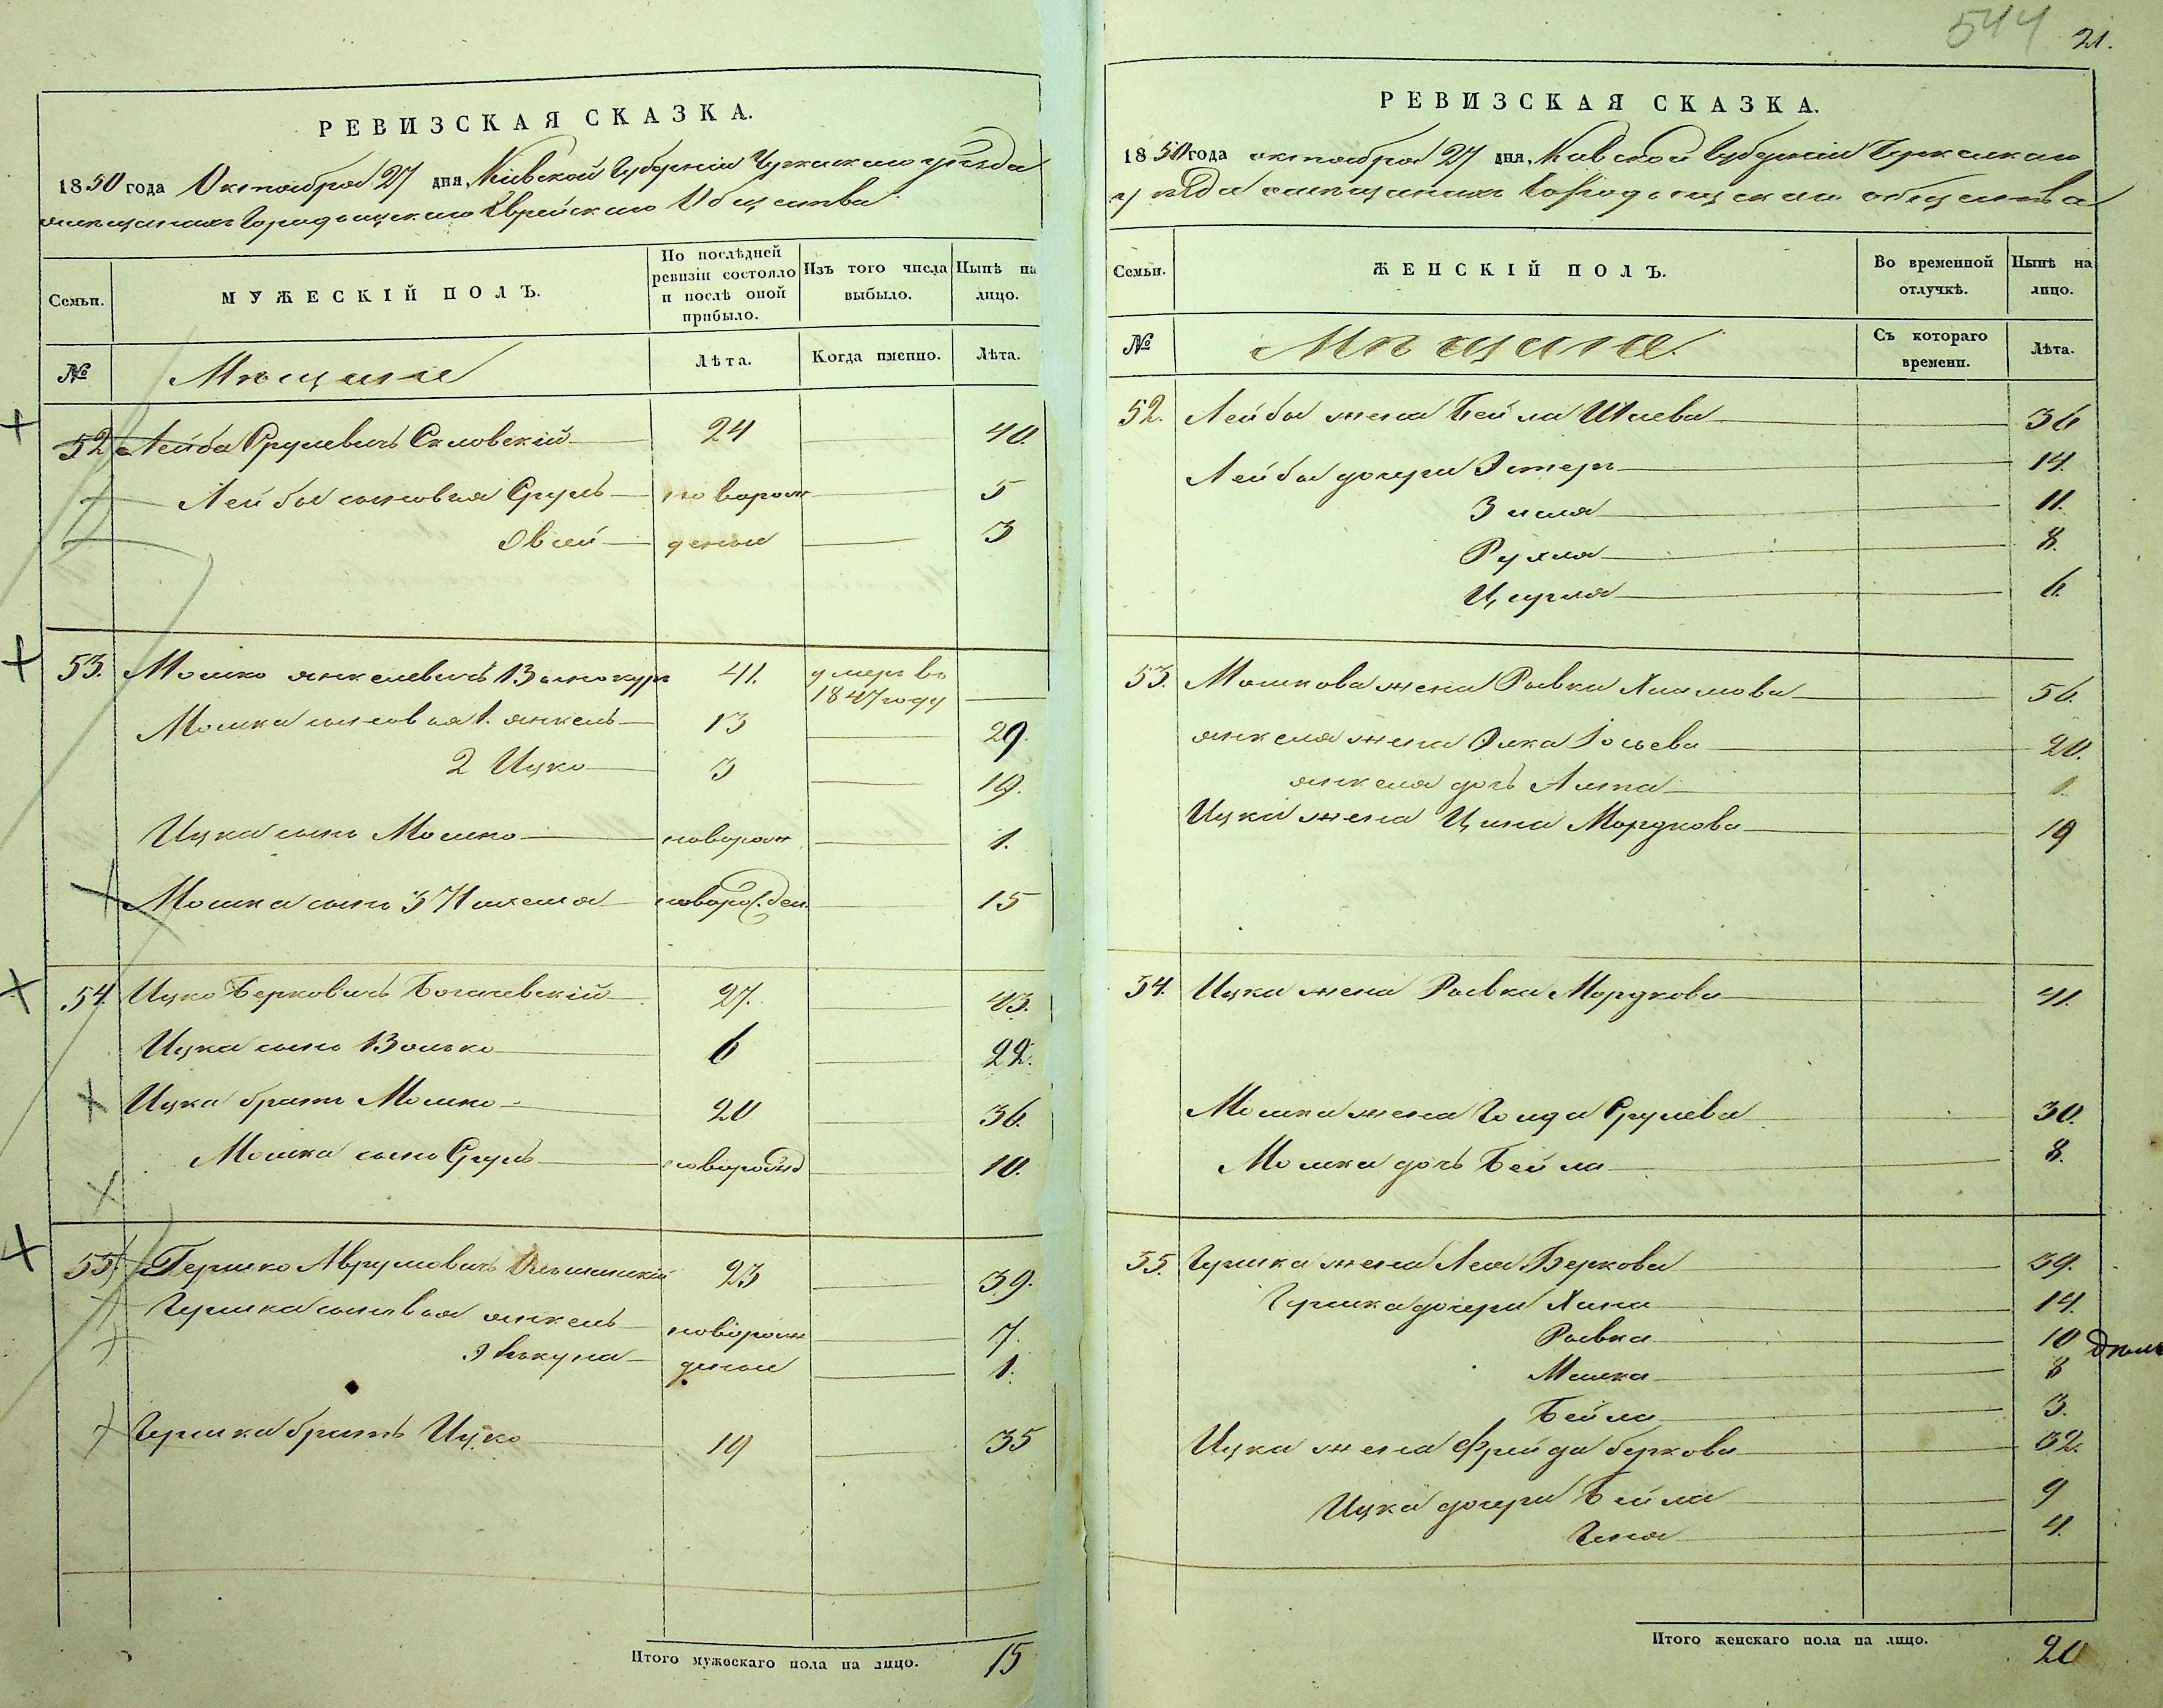 544 21.
РЕВИЗСКАЯ СКАЗКА.
1850 года Октября 27 дня, Кіевской Губерніи Черкаскаго уѣзда
мещанах Городищскаго Еврейскаго Общества
Семьи.
МУЖЕСКІЙ ПОЛЪ.
По послѣдней ревизіи состояло и послѣ оной прибыло.
Изъ того числа выбыло.
Нынѣ на лицо.
№
Мѣщане
Лѣта.
Когда именно.
Лѣта.
52 Лейба Срулевичъ 24 40.
Лейбы сыновья Сруль новорож 5
Овсей денные 3
53. Мошко Янкелевичъ Винокуръ 41. умеръ въ 1847 году
Мошка сыновья 1. Янкель 13 29.
2 Ицко 3 19.
Ицка сынъ Мошко новорож 1.
Мошка сынъ 3 новорожден. 15
54. Ицко Берковичъ Богачевскій 27. 43.
Ицка сынъ Волько 6 22.
Ицка братъ Мошко 20 36.
Мошка сынъ Сруль новорожд 10.
55. Гершко Аврумовичъ 23 39.
Гершка сыновья Янкель новорож 7.
денные 1.
Гершка братъ Ицко 19 35
Итого мужескаго пола на лицо. 15
РЕВИЗСКАЯ СКАЗКА.
1850 года октября 27 дня, Кіевской Губерніи Черкаскаго
уѣзда мещанах Городищскаго общества
Семьи.
ЖЕНСКІЙ ПОЛЪ.
Во временной отлучкѣ.
Нынѣ на лицо.
№
Мѣщане.
Съ котораго времени.
Лѣта.
52. Лейбы жена Бейла Шаева 36
Лейбы дочери Эстеръ 14.
Зисля 11.
Рухля 8.
Цирля 6.
53. Мошкова жена Ривка Хаимова 56.
Янкеля жена Элка Іосьева 20.
Янкеля дочь 1.
Ицка жена Цина Мордкова 19
54. Ицка жена Ривка Мордкова 41.
Мошка жена Голда Срулева 30.
Мошка дочь Бейла 8.
55. Гершка жена Лея Беркова 39.
Гершка дочери Хана 14.
Ривка 10
8
Бейла 3.
Ицка жена Фрейда Беркова 32.
Ицка дочери Бейла 9
Геня 4.
Итого женскаго пола на лицо. 20